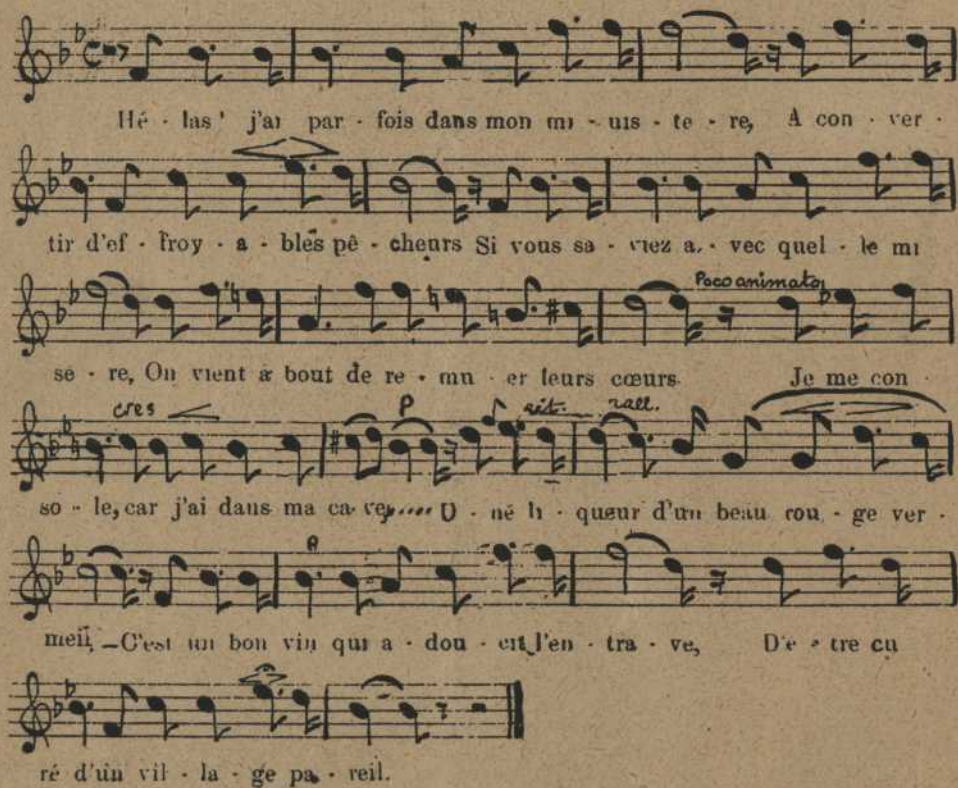 Hé - las ' j'ai par - fois dans mon mi - uis - te - re, A con - ver -
tir d'ef - froy - a - bles pê - cheurs Si vous sa - viez a - vec quel - le mi
se - re, On vient à bout de re - mu - er leurs cœurs. Je me con -
Poco animato
cres P rit. rall.
so - le, car j'ai dans ma ca - ve..... U - ne li - queur d'un beau rou - ge ver -
meil, – C'est un bon vin qui a - dou - cit l'en - tra - ve, D'e - tre cu
ré d'un vil - la - ge pa - reil.